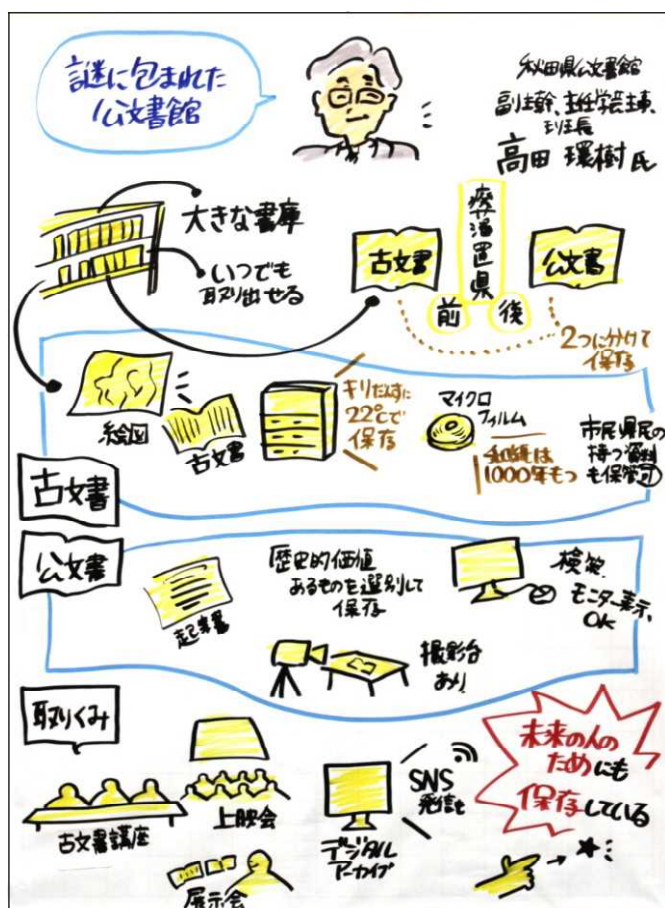 謎に包まれた
公文書館
秋田県公文書館
副主幹、主任学芸主事、
班長
高田 環樹 氏
大きな書庫
いつでも
取り出せる
古文書
廃藩置県
前
後
公文書
2つに分けて
保存
絵図
古文書
キリだんすに
22℃で
保存
マイクロ
フィルム
和紙は
1000年もつ
市民県民の
持つ資料
も保管可
古文書
公文書
起案書
歴史的価値
あるものを選別して
保存
検索、
モニター表示、
OK
撮影台
あり
取りくみ
古文書講座
上映会
展示会
デジタル
アーカイブ
SNS
発信も
未来の人の
ためにも
保存している